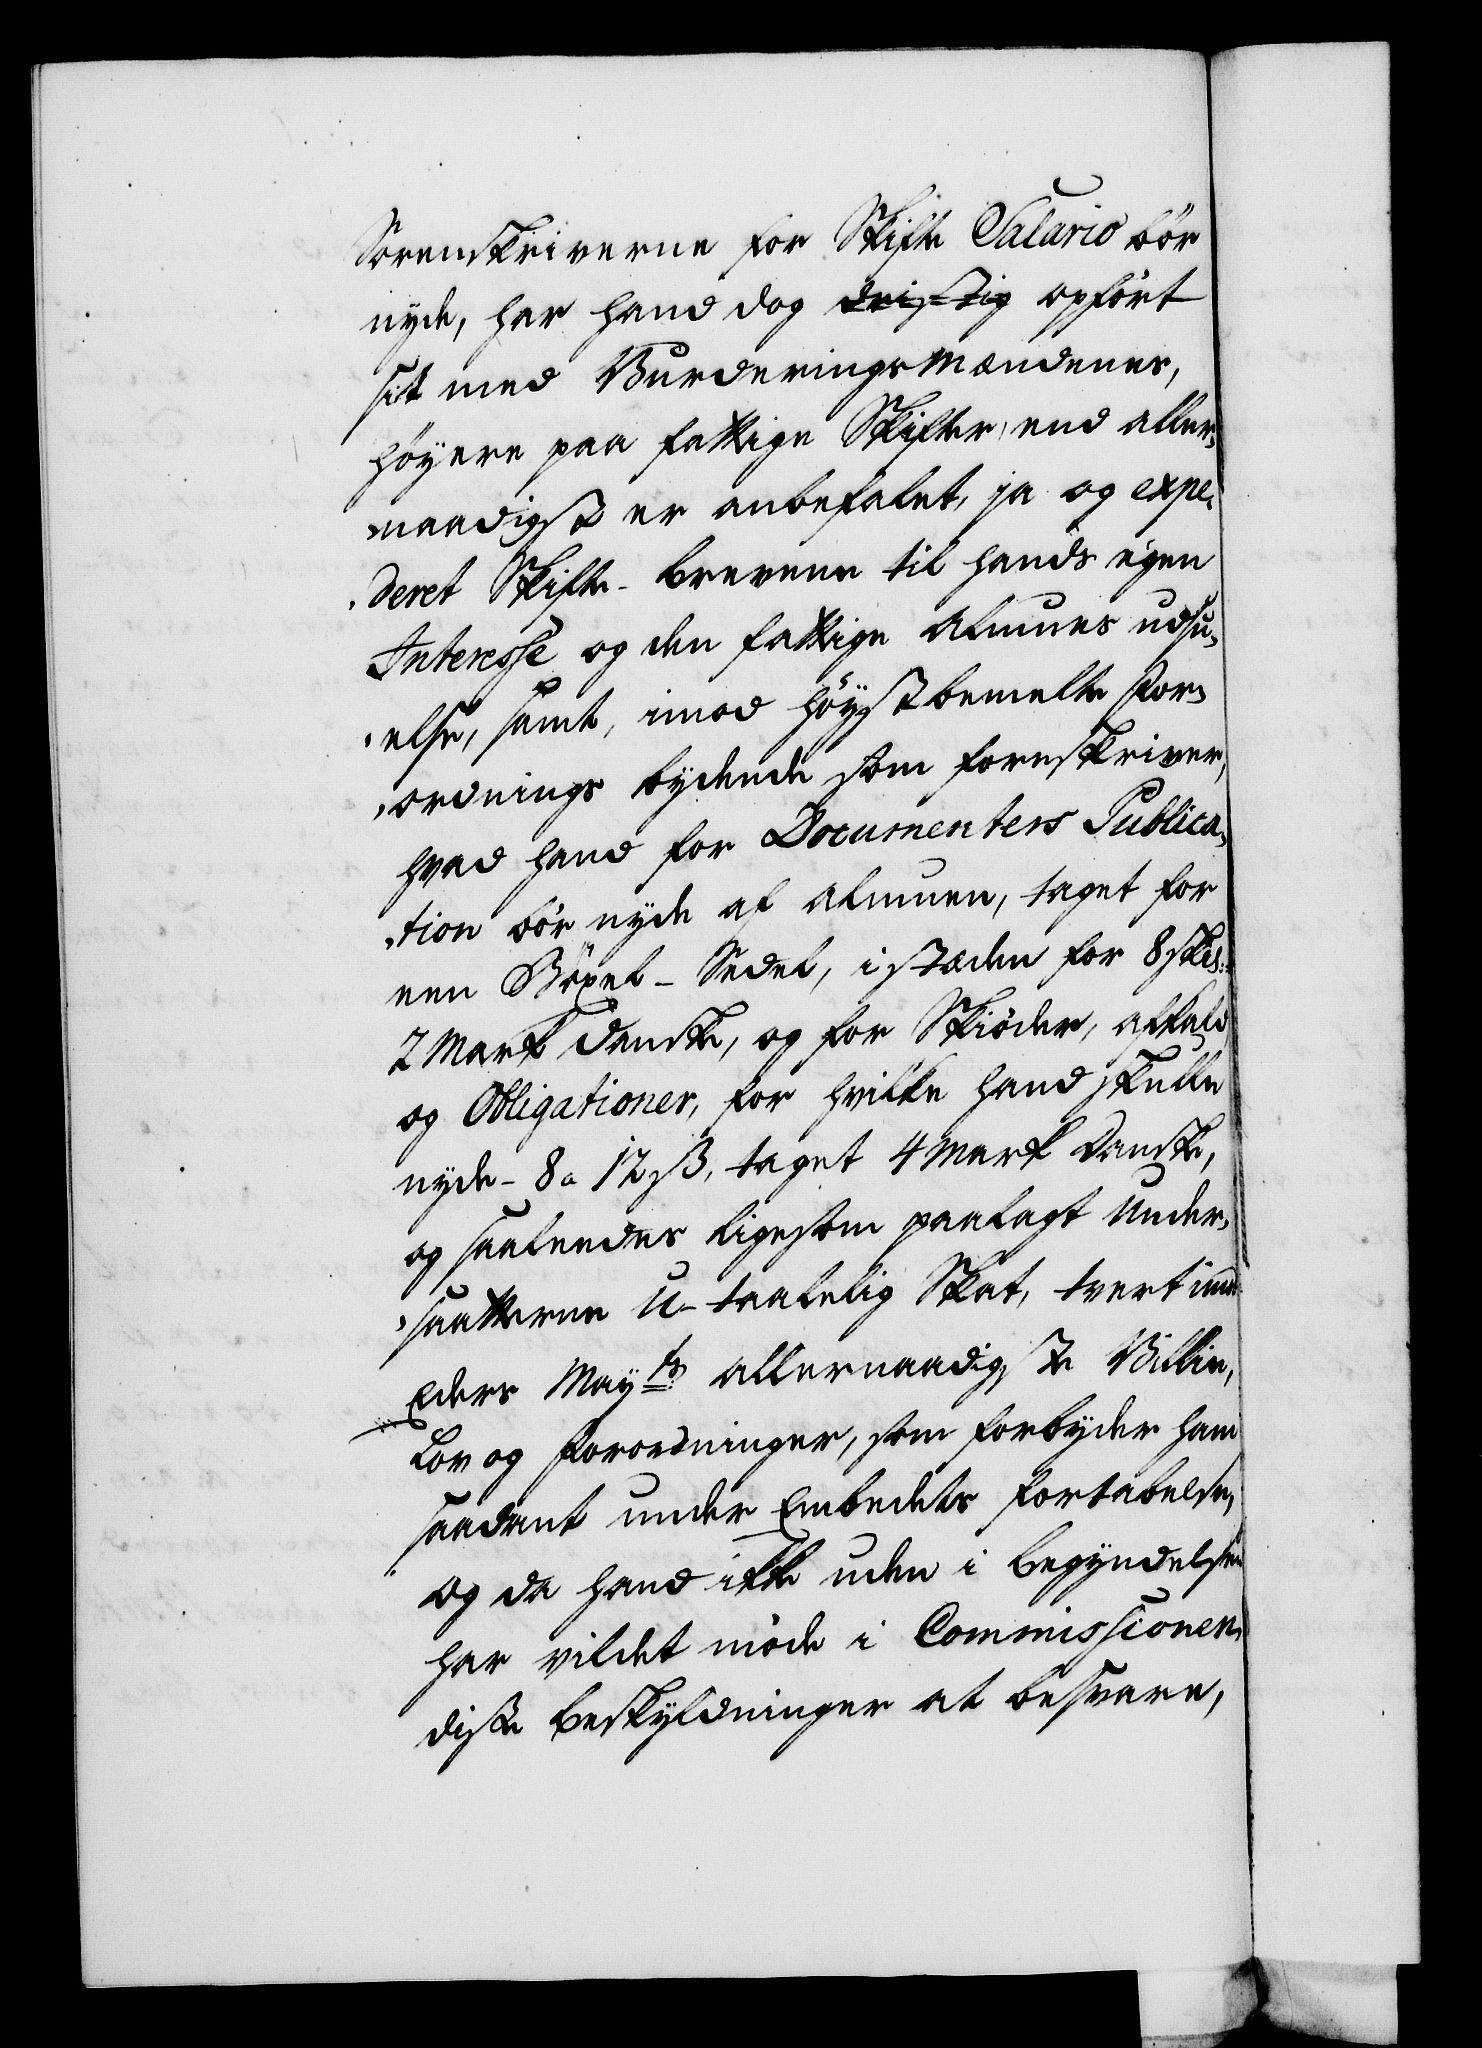 Sorenskriverne for Skifte Salario bör
nyde, har hand dog dristig opfört
sit med Vurderings Mændenes,
höyere paa fattige Skifter, end aller,
naadigst er anbefalet, ja og expe,
deret Skifte-brevene til hands egen
Interesse og den fattige Almues udsu,
else, samt, imod höystbemelte For,
ordnings bydende som foreskriver,
hvad hand for Documenters Publica,
tion bör nyde af Almuen, taget for
een Böxel-Sedel, i stæden for 8 skil:
2 Mark Danske, og for Skiöder, afkald
og Obligationer, for hvilke hand skulle
nyde 8 a 12 ß, taget 4 Mark Danske,
og saaledes ligesom paalagt Under,
saatterne U-taalelig Skat, tvert imod
Eders Mayts allernaadigste Villie,
Lov og Forordninger, som forbyder ham
saadant under Embedets Fortabelse,
og da hand ikke uden i begyndelsen
har vildet möde i Commissionen
disse beskyldninger at besvare,